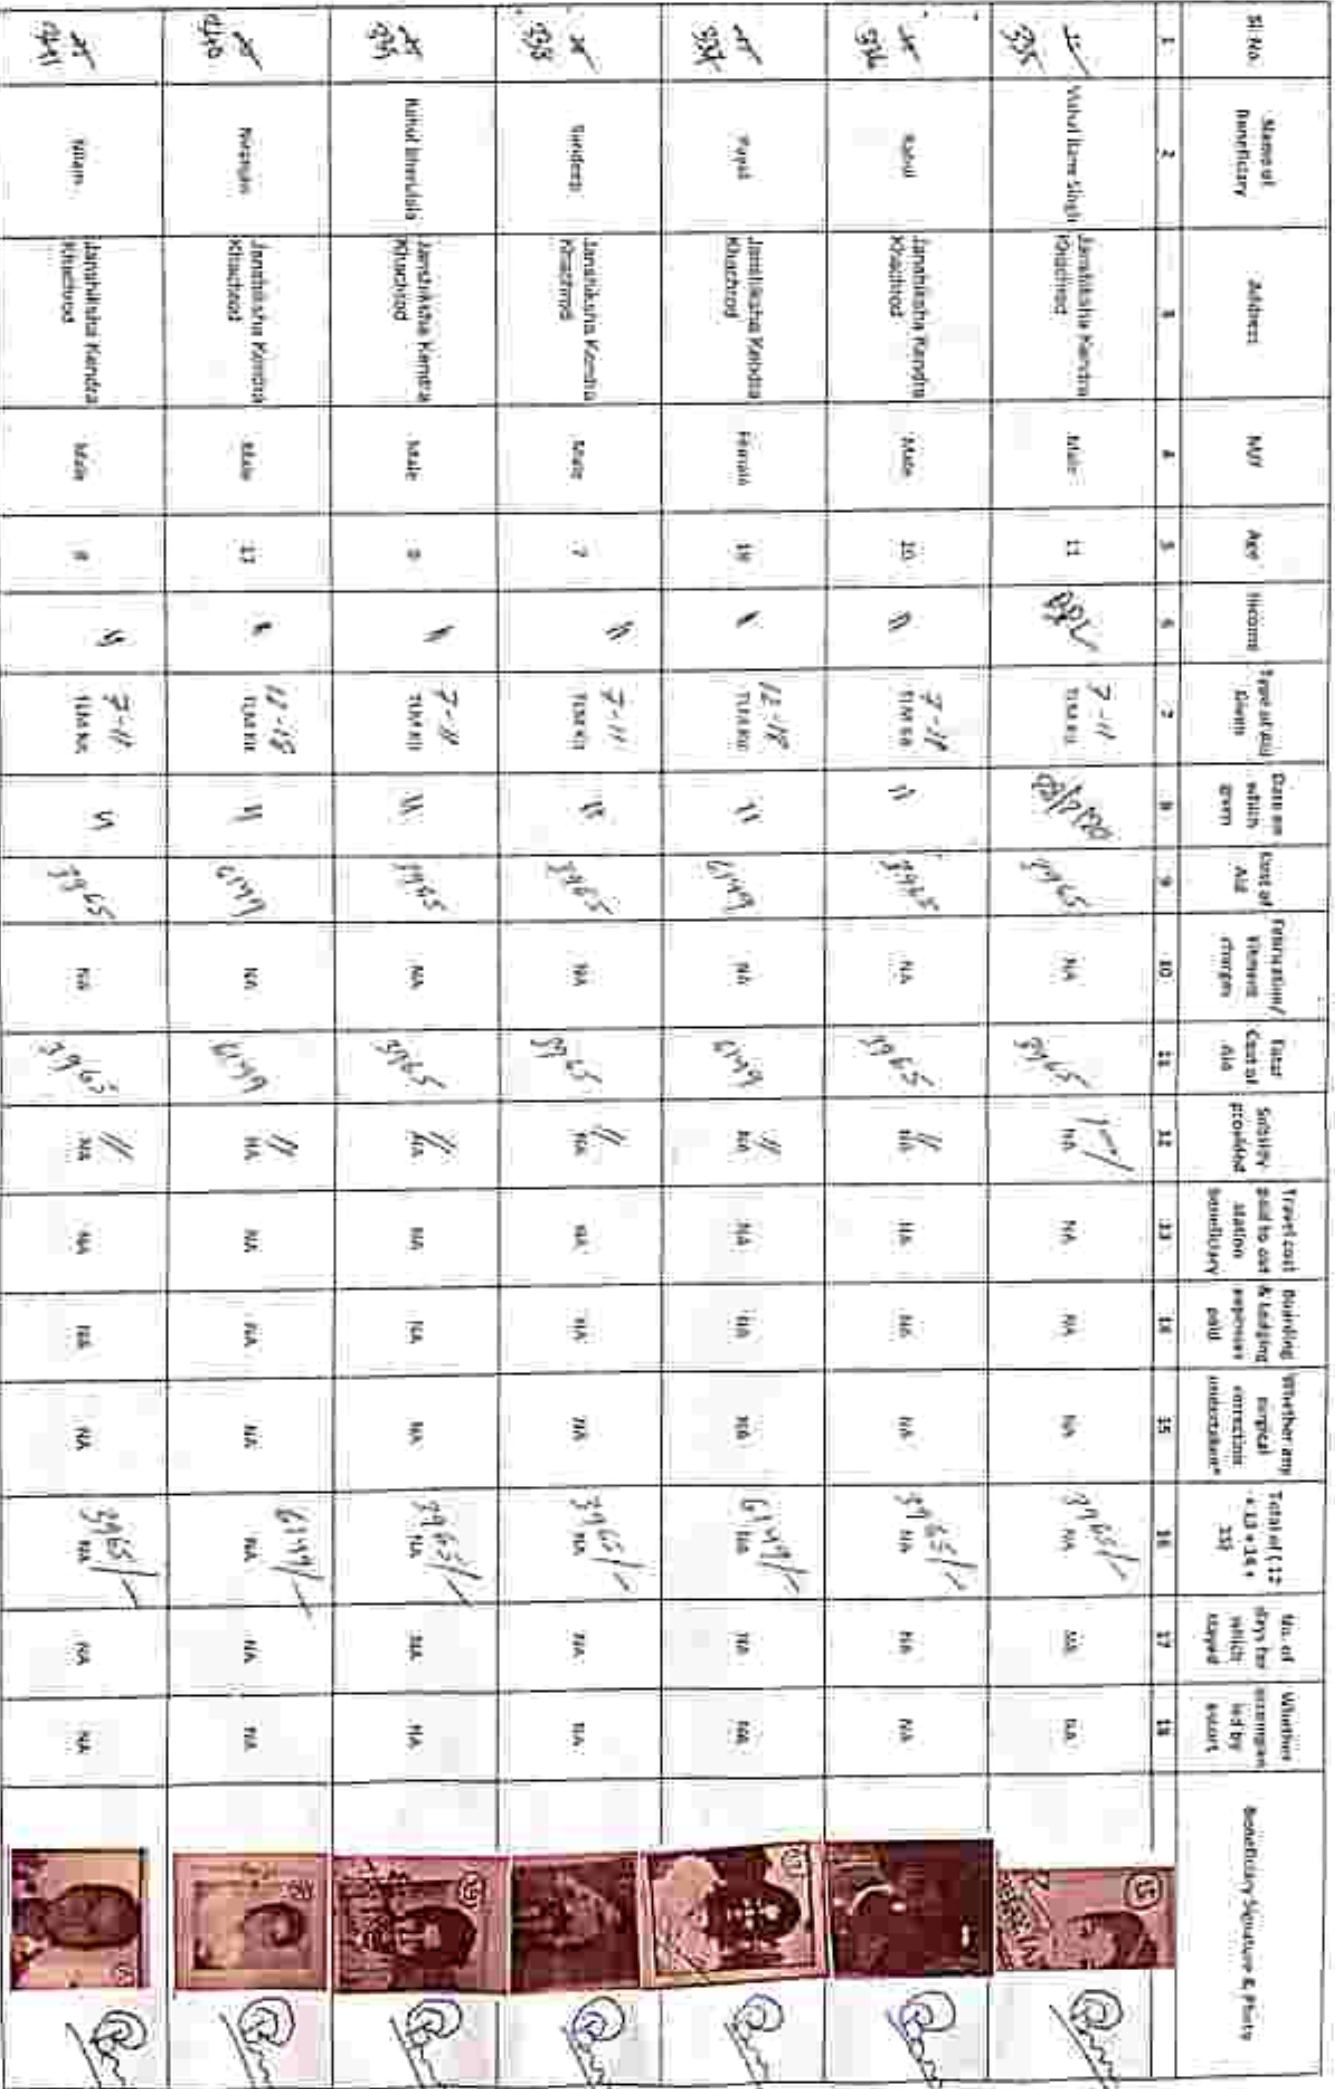 Sl No.
Name of
Beneficiary
Address
M/F
Age
Income
Type of Aid
Given
Date on
which
given
Cost of
Aid
Fabrication/
Fitment
charges
Total
Cost of
Aid
Subsidy
provided
Travel cost
paid to out
station
beneficiary
Boarding
& Lodging
expenses
paid
Whether any
surgical
correction
undertaken*
Total of ( 12
+ 13 + 14 +
15)
No. of
days for
which
stayed
Whether
accompan
ied by
escort
Beneficiary Signature & Photo
1 2 3 4 5 6 7 8 9 10 11 12 13 14 15 16 17 18
335
Singh
Janshiksha Kendra
Khachrod
Male
11
7-11
TLM Kit
3965
NA
3965
NA
NA
NA
NA
3965/-
NA
NA
NA
15
336
Rahul
Janshiksha Kendra
Khachrod
Male
10
"
TLM Kit
"
3965
NA
3965
"
NA
NA
NA
NA
3965/-
NA
NA
NA
337
Payal
Janshiksha Kendra
Khachrod
Female
"
12-18
TLM Kit
"
6149
NA
6149
"
NA
NA
NA
NA
6149/-
NA
NA
NA
338
Sandeep
Janshiksha Kendra
Khachrod
Male
7
"
7-11
TLM Kit
"
3965
NA
3965
"
NA
NA
NA
NA
3965/-
NA
NA
NA
339
Rahul
Janshiksha Kendra
Khachrod
Male
"
7-11
TLM Kit
"
3965
NA
3965
"
NA
NA
NA
NA
3965/-
NA
NA
NA
340
Janshiksha Kendra
Khachrod
Male
"
12-18
TLM Kit
"
6149
NA
6149
"
NA
NA
NA
NA
6149/-
NA
NA
NA
341
Janshiksha Kendra
Khachrod
Male
8
"
7-11
TLM Kit
"
3965
NA
3965
"
NA
NA
NA
NA
3965/-
NA
NA
NA